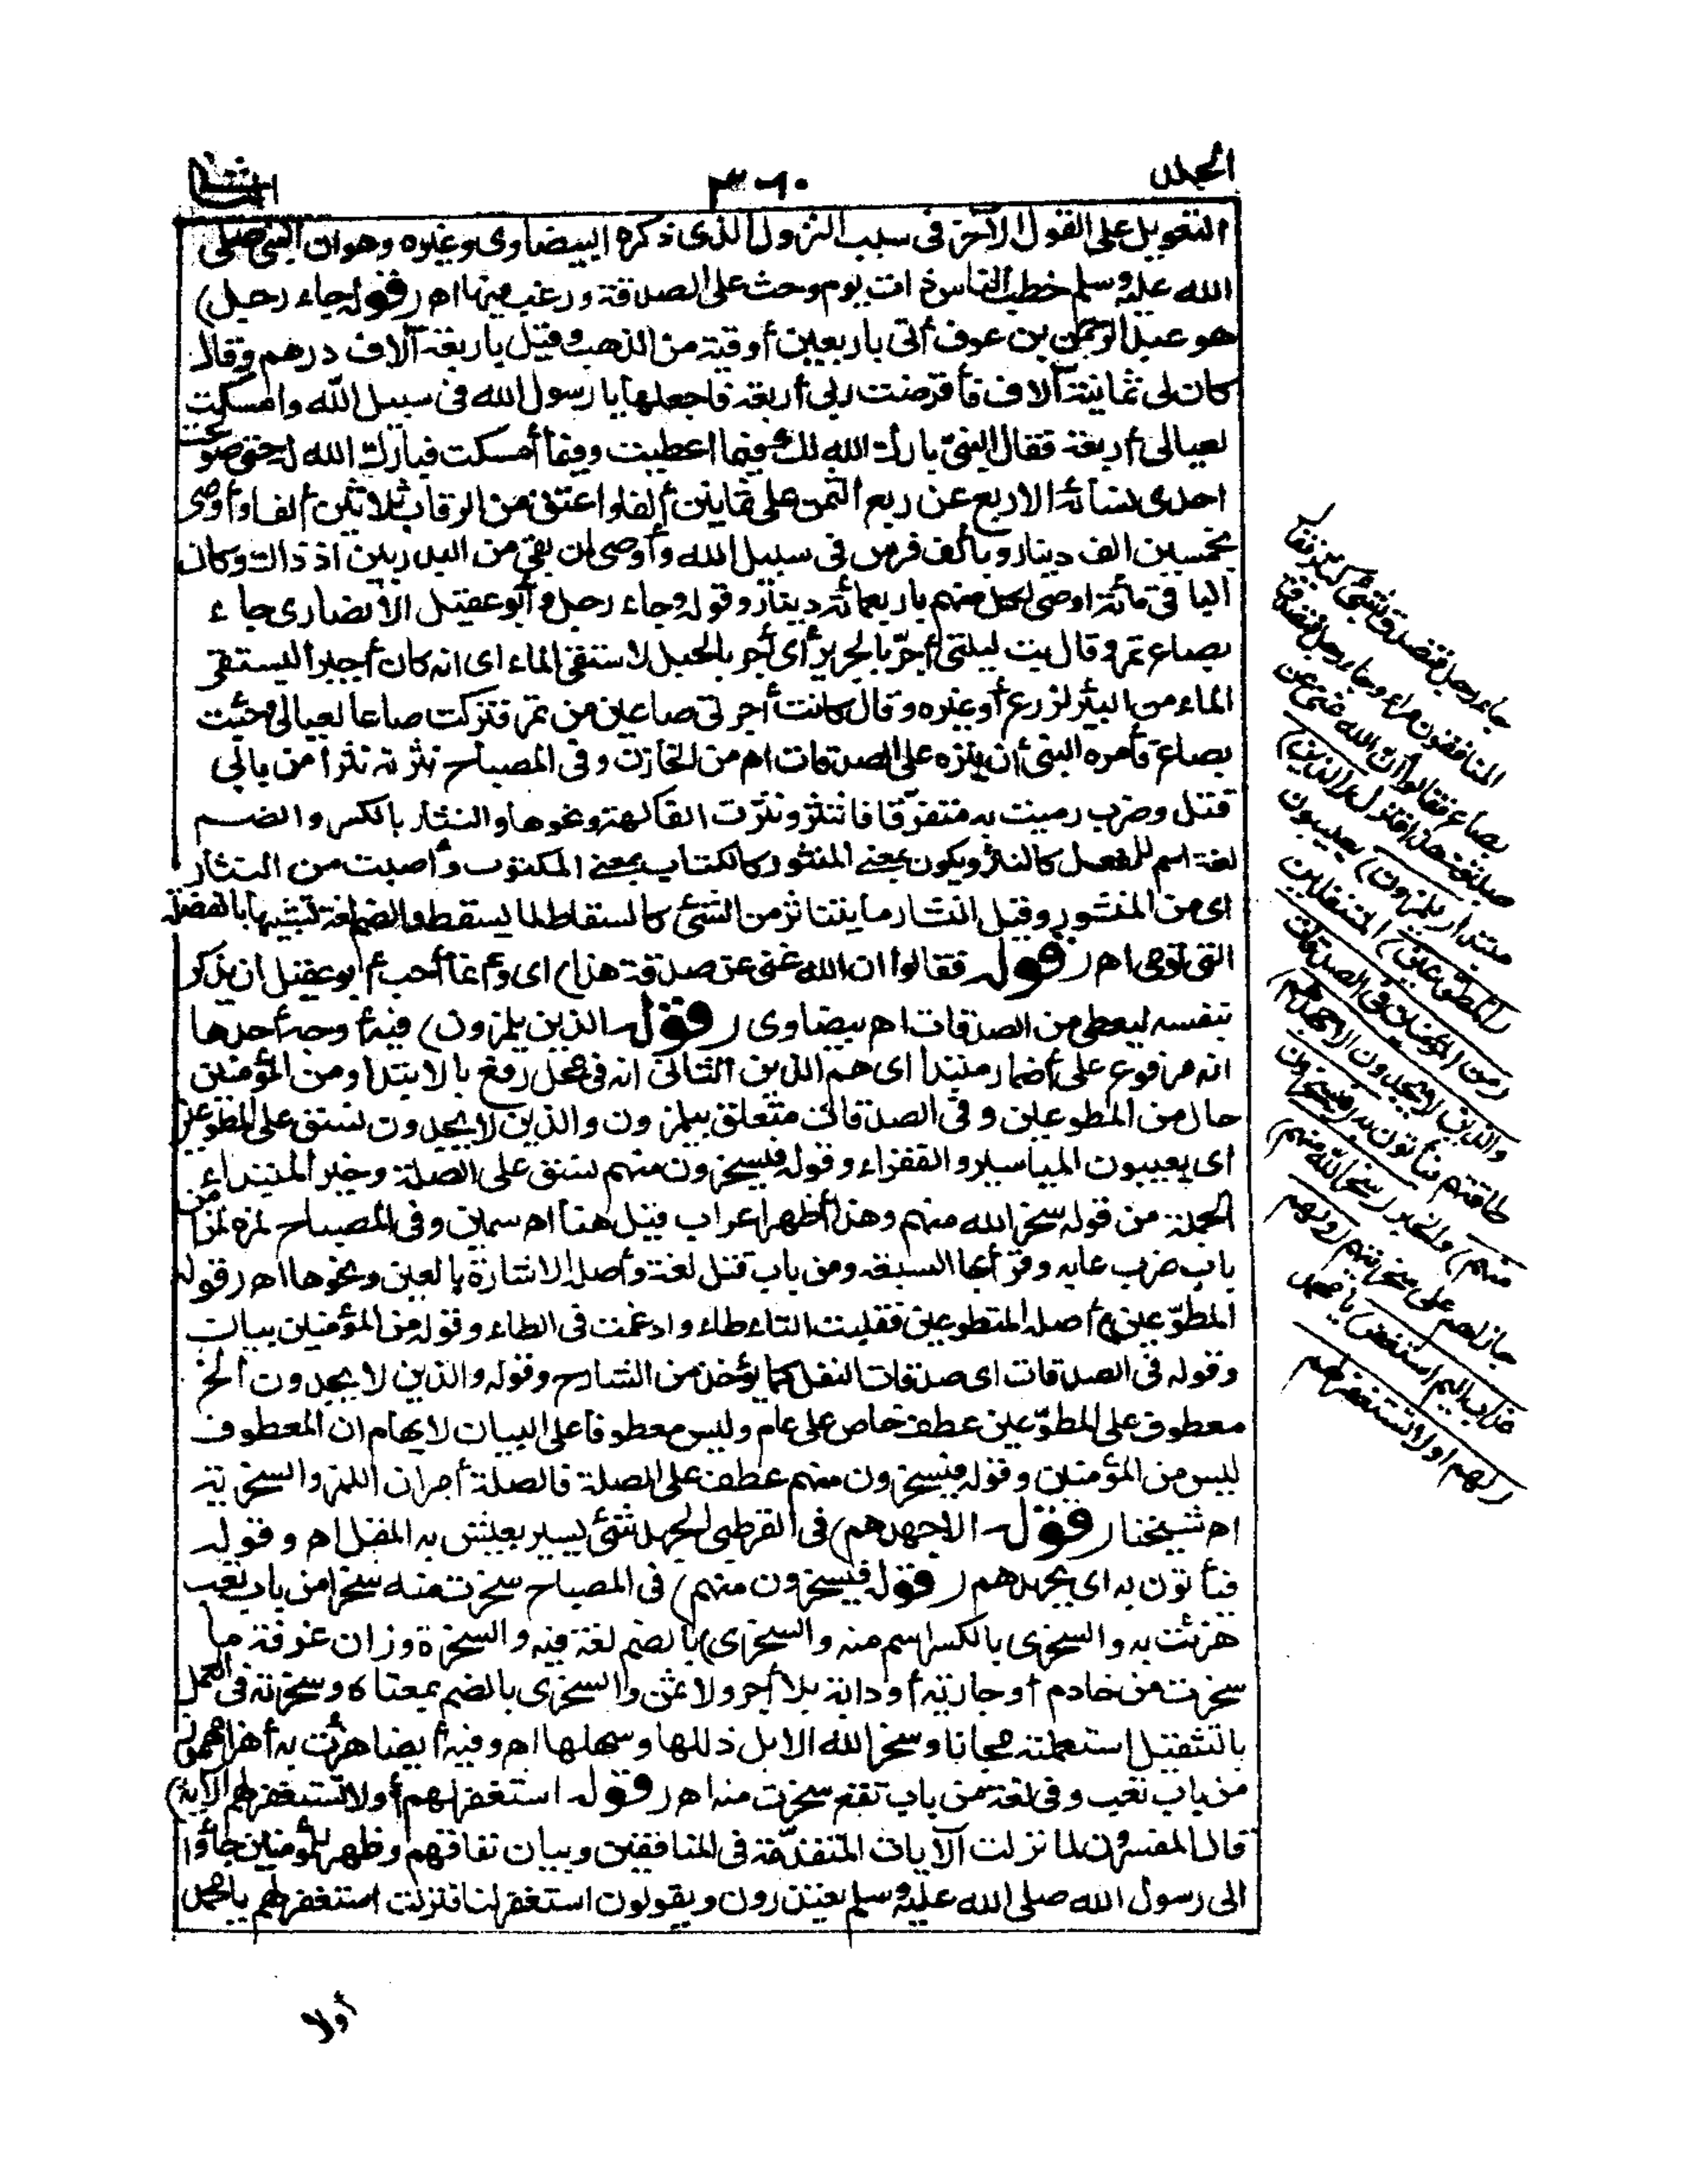 المجلد
٣٦٠
الثانى
التعويل على القول الآخر فى سبب النزول الذى ذكره البيضاوى وغيره وهوان النبى صلى
الله عليه وسلم خطب الناس ذات يوم وحث على الصدقة ورغب فيها اه (قوله جاء رجل)
هو عبد الرحمن بن عوف أتى باربعين أوقية من الذهب وقيل باربعة آلاف درهم وقال
كان لى ثمانية آلاف فأقرضت ربى أربعة فاجعلها يا رسول الله فى سبيل الله وامسكت
لعيالى أربعة فقال النبى بارك الله لك فيما اعطيت وفيما أمسكت فبارك الله له حتى صولحت
احدى نسائه الاربع عن ربع الثمن على ثمانين ألفا واعتق من الرقاب ثلاثين ألفا وأوصى
بخمسين الف دينار وبألف فرس فى سبيل الله وأوصى لمن بقى من البدريين اذ ذاك وكان
الباقى مائة اوصى لكل منهم باربعمائة دينار وقوله وجاء رجل هو أبو عقيل الأنصارى جاء
بصاع تمر وقال بت ليلتى أجر بالجرير أى أجر بالحبل لاستقى الماء اى انه كان أجيرا ليستقى
الماء من البئر لزرع أو غيره وقال كانت أجرتى صاعين من تمر فتركت صاعا لعيالى وجئت
بصاع فأمره النبى أن ينثره على الصدقات اه من الخازن وفى المصباح نثرته نثرا من بابى
قتل وضرب رميت به متفرقا فانتثر ونثرت الفاكهة ونحوها والنثار بالكسر والضم
لغة اسم للفعل كالنثر ويكون بمعنى المنثور كالكتاب بمعنى المكتوب وأصبت من النثار
اى من المنثور وقيل النثار ما يتناثر من الشئ كالسقاط لما يسقط والضم لغة تشبيها بالفضلة
التى ترمى اه (قوله فقالوا ان الله غنى عن صدقة هذا) اى وانما أحب أبو عقيل ان يذكر
بنفسه ليعطى من الصدقات اه بيضاوى (قوله الذين يلمزون) فيه أوجه أحدها
انه مرفوع على أضمار مبتدا اى هم الذين الثانى انه فى محل رفع بالابتدا ومن المؤمنين
حال من المطوعين وفى الصدقات متعلق بيلمزون والذين لا يجدون نسق على المطوعين
اى يعيبون المياسير والفقراء وقوله فيسخرون منهم نسق على الصلة وخبر المبتداء
الجملة من قوله سخر الله منهم وهذا أظهر اعراب قيل هنا اه سمين وفى المصباح لمزه لمزا من
باب ضرب عابه وقرأ بها السبعة ومن باب قتل لغة وأصله الاشارة بالعين ونحوها اه (قوله
المطوعين) أصله المتطوعين فقلبت التاء طاء وادغمت فى الطاء وقوله من المؤمنين بيان
وقوله فى الصدقات اى صدقات النفل كما يؤخذ من الشارح وقوله والذين لا يجدون الخ
معطوف على المطوعين عطف خاص على عام وليس معطوفا على البيان لايهام ان المعطوف
ليس من المؤمنين وقوله فيسخرون منهم عطف على الصلة فالصلة أمران اللمز والسخرية
اه شيخنا (قوله الاجهدهم) فى القرطبى الجهد شئ يسير يعيش به المقل اه وقوله
فيأتون به اى بجهدهم (قوله فيسخرون منهم) فى المصباح سخرت منه سخرا من باب تعب
هزئت به والسخرى بالكسر اسم منه والسخرى بالضم لغة فيه والسخرة وزان غرفة ما
سخرت من خادم أو جارية أو دابة بلا أجر ولا ثمن والسخرى بالضم بمعناه وسخرته فى العمل
بالتثقيل استعملته مجانا وسخر الله الابل ذللها وسهلها اه وفيه أيضا هزئت به أهزأ مهموز
من باب تعب وفى لغة من باب نفع سخرت منه اه (قوله استغفر لهم أو لا تستغفر لهم الآية)
قال المفسرون لما نزلت الآيات المتقدمة فى المنافقين وبيان نفاقهم وظهر للمؤمنين جاؤا
الى رسول الله صلى الله عليه وسلم يعتذرون ويقولون استغفر لنا فنزلت استغفر لهم يا محمد
أولا
جاء رجل فتصدق بشئ كثير فقال
المنافقون مراء وجاء رجل فتصدق
بصاع فقالوا ان الله غنى عن
صدقة هذا فنزل (الذين)
مبتدا (يلمزون) يعيبون
(المطوعين) المتنفلين
(من المؤمنين فى الصدقات
والذين لا يجدون الاجهدهم)
طاقتهم فيأتون به (فيسخرون
منهم) والخبر (سخر الله منهم)
جازاهم على سخريتهم (ولهم
عذاب اليم استغفر) يا محمد
(لهم اولا تستغفر لهم